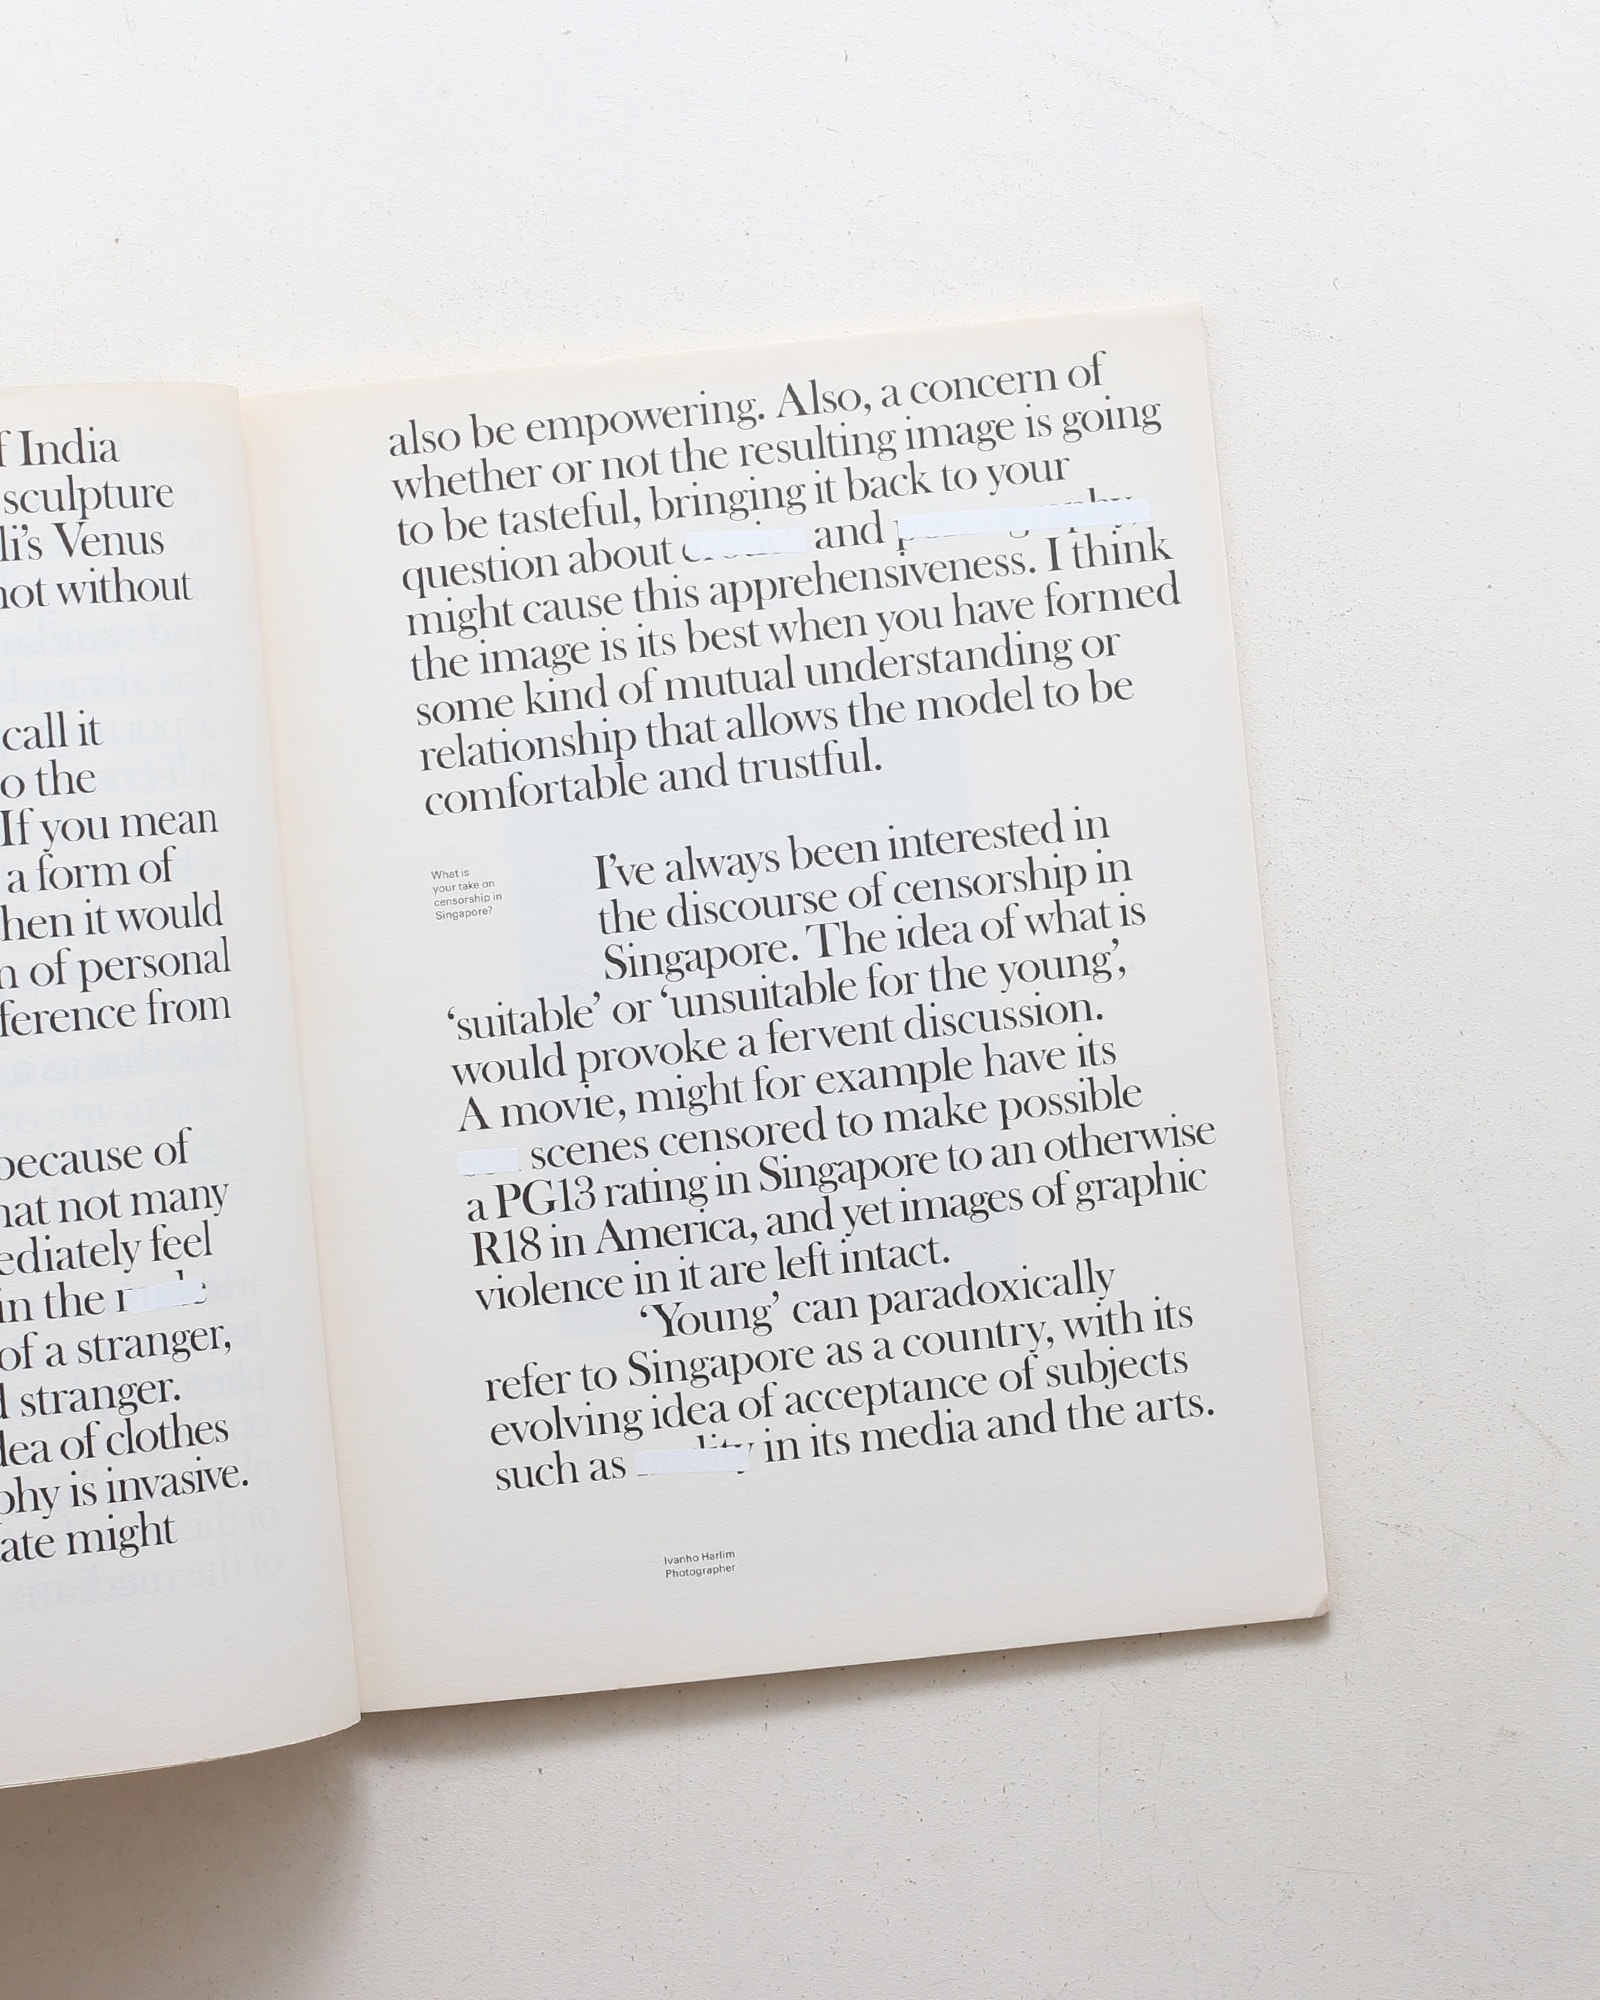 f India
sculpture
li’s Venus
not without
call it
o the
If you mean
a form of
hen it would
n of personal
ference from
because of
hat not many
ediately feel
in the
of a stranger,
d stranger.
dea of clothes
phy is invasive.
ate might
also be empowering. Also, a concern of
whether or not the resulting image is going
to be tasteful, bringing it back to your
question about and
might cause this apprehensiveness. I think
the image is its best when you have formed
some kind of mutual understanding or
relationship that allows the model to be
comfortable and trustful.
What is
your take on
censorship in
Singapore?
I’ve always been interested in
the discourse of censorship in
Singapore. The idea of what is
‘suitable’ or ‘unsuitable for the young’,
would provoke a fervent discussion.
A movie, might for example have its
scenes censored to make possible
a PG13 rating in Singapore to an otherwise
R18 in America, and yet images of graphic
violence in it are left intact.
‘Young’ can paradoxically
refer to Singapore as a country, with its
evolving idea of acceptance of subjects
such as in its media and the arts.
Ivanho Harlim
Photographer